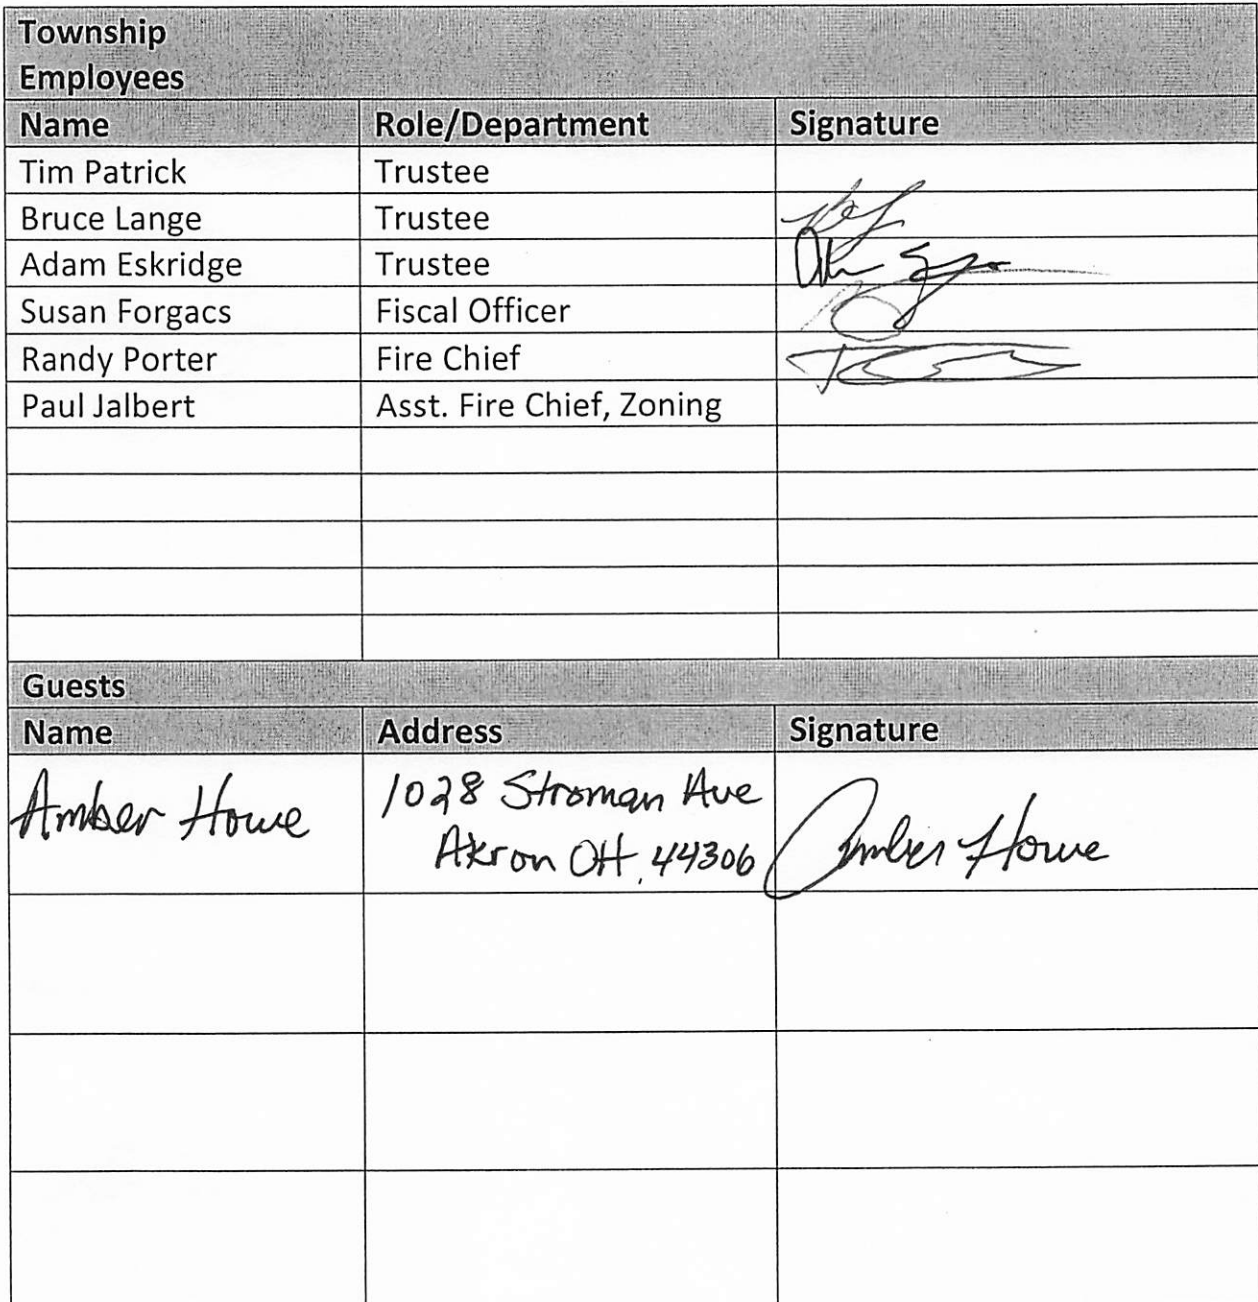 Township
Employees
Name Role/Department Signature
Tim Patrick Trustee
Bruce Lange Trustee
Adam Eskridge Trustee
Susan Forgacs Fiscal Officer
Randy Porter Fire Chief
Paul Jalbert Asst. Fire Chief, Zoning
Guests
Name Address Signature
Amber Howe 1028 Stroman Ave
Akron OH, 44306 Amber Howe